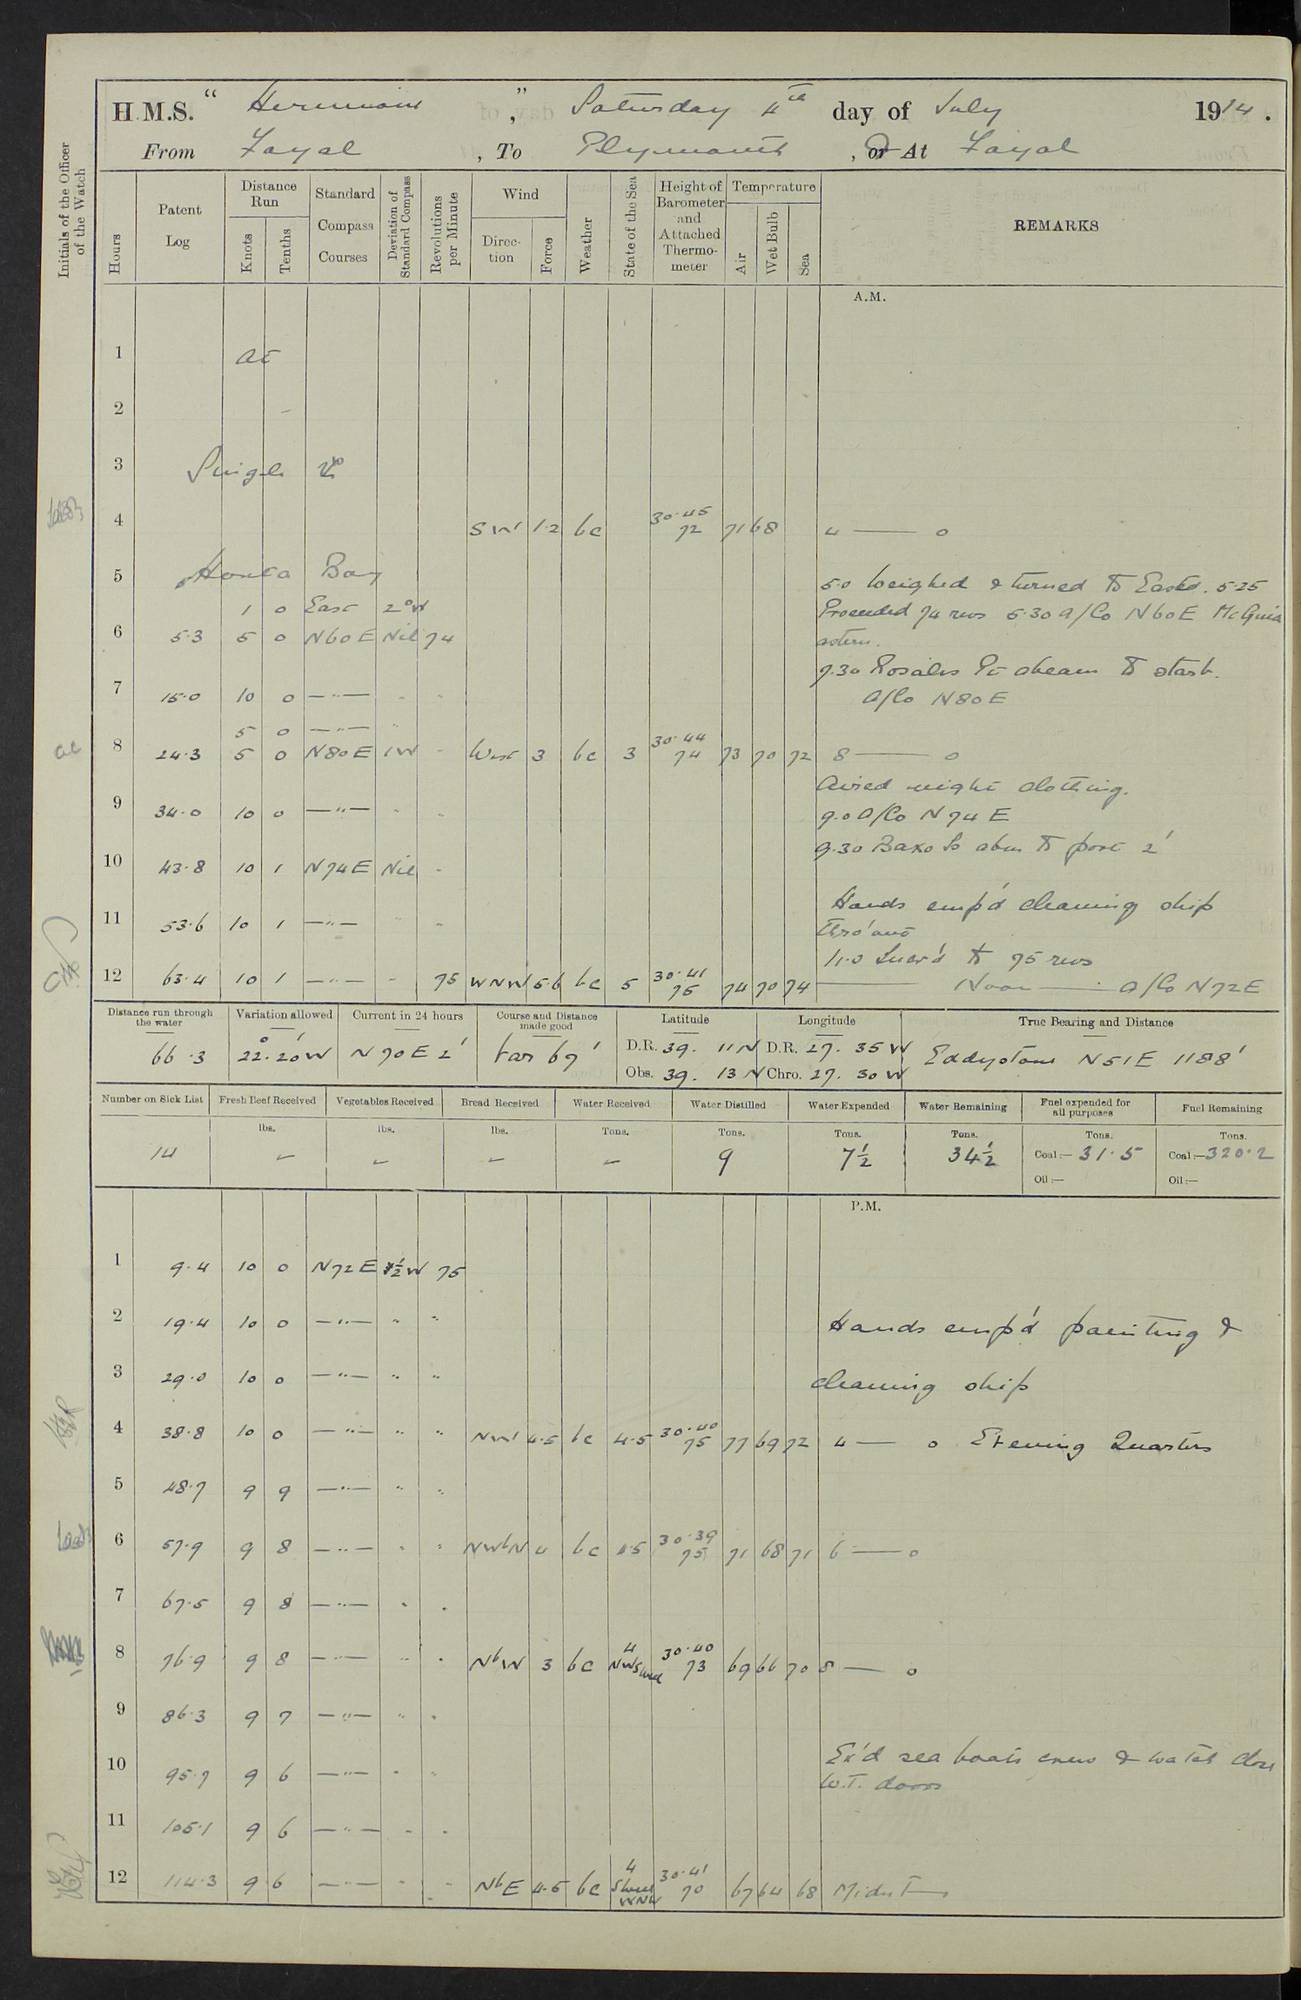 H.M.S. " Hermione ", Saturday 4th day of July 1914.
From Fayal, To Plymouth, or At Fayal
Initials of the Officer of the Watch
Hours
Patent Log
Distance Run
Knots
Tenths
Standard Compass Courses
Deviation of Standard Compass
Revolutions per Minute
Wind
Direction
Force
Weather
State of the Sea
Height of Barometer and Attached Thermometer
Temperature
Air
Wet Bulb
Sea
REMARKS
A.M.
1 at
2
3 Single
4 SW 1.2 bc 30.45 72 71 68 4 — 0
5 Horta Bay
5.0 Weighed & turned to Eastd. 5.25
1 0 East 2°W
Proceeded 74 revs 5.30 a/Co N60E
6 5.3 5 0 N60E Nil 74
astern.
7.30 Rosales Pt abeam to starb.
7 15.0 10 0 —"—
a/Co N80E
5 0 —"—
8 24.3 5 0 N80E 1W " West 3 bc 3 30.44 74 73 70 72 8 — 0
Aired night clothing.
9 34.0 10 0 —"—
9.0 a/Co N74E
9.30 Baxo So abm to port 2'
10 43.8 10 1 N74E Nil "
Hands emp'd cleaning ship
11 53.6 10 1 —"—
thro'out
11.0 Incr'd to 75 revs
12 63.4 10 1 —"— " 75 WNW 5.6 bc 5 30.41 75 74 70 74 — Noon — a/Co N72E
Distance run through the water
66.3
Variation allowed
22°.20'W
Current in 24 hours
N70E 2'
Course and Distance made good
Var 67'
Latitude
D.R. 39. 11 N
Obs. 39. 13 N
Longitude
D.R. 27. 35 W
Chro. 27. 30 W
True Bearing and Distance
Eddystone N51E 1188'
Number on Sick List
14
Fresh Beef Received
lbs.
–
Vegetables Received
lbs.
–
Bread Received
lbs.
–
Water Received
Tons.
–
Water Distilled
Tons.
9
Water Expended
Tons.
7½
Water Remaining
Tons.
34½
Fuel expended for all purposes
Tons.
Coal:— 31.5
Oil:—
Fuel Remaining
Tons.
Coal:— 320.2
Oil:—
P.M.
1 9.4 10 0 N72E ½W 75
2 19.4 10 0 —"— " "
Hands emp'd painting &
3 29.0 10 0 —"— " "
cleaning ship
4 38.8 10 0 —"— " " NW 4.5 bc 4.5 30.40 75 77 69 72 4 — 0 Evening Quarters
5 48.7 9 9 —"— " "
6 57.9 9 8 —"— " " NWbN 4 bc 4.5 30.39 75 71 68 71 6 — 0
7 67.5 9 8 —"— " "
8 76.9 9 8 —"— " " NbW 3 bc 4 NW Swell 30.40 73 69 66 70 8 — 0
9 86.3 9 7 —"— " "
Ex'd sea boats crew & watch close
10 95.7 9 6 —"— " "
W.T. doors
11 105.1 9 6 —"— " "
12 114.3 9 6 —"— " " NbE 4.5 bc 4 Swell WNW 30.41 70 67 64 68 Midnt